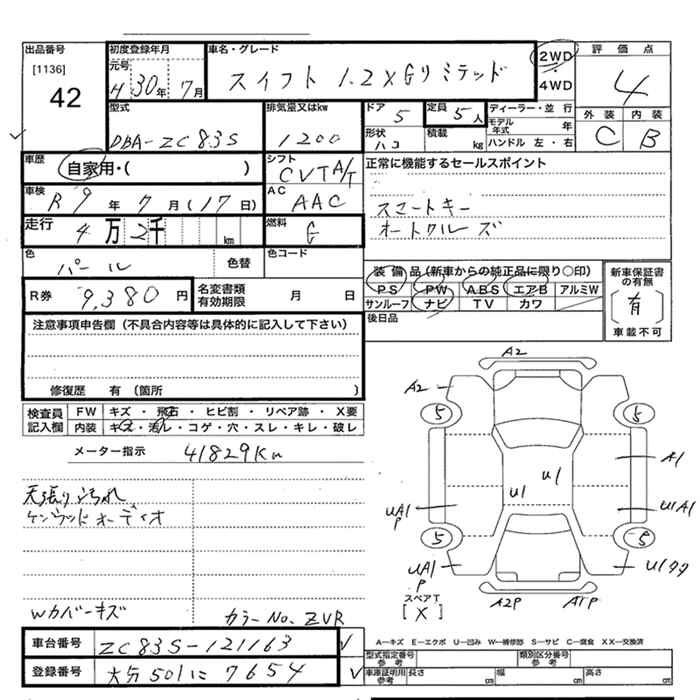 出品番号
[1136]
42
初度登録年月
元号
H 30年 7月
車名・グレード
スイフト 1.2 XGリミテッド
2WD
・
4WD
評価点
4
型式
DBA-ZC83S
排気量又はkw
1200
ドア 5
定員 5人
形状 ハコ
積載 kg
ディーラー・並行
モデル年式 年
ハンドル 左・右
外装 内装
C B
車歴
自家用・( )
シフト
CVT A/T
正常に機能するセールスポイント
スマートキー
オートクルーズ
車検
R9年 7月 (17日)
AC
AAC
走行
4万2千 km
燃料
G
色
パール
色替
色コード
R券 9,380円
名変書類有効期限 月 日
装備品(新車からの純正品に限り○印)
PS PW ABS エアB アルミW
サンルーフ ナビ TV カワ
後日品
新車保証書の有無
(有)
車載不可
注意事項申告欄(不具合内容等は具体的に記入して下さい)
修復歴 有(箇所 )
検査員記入欄
FW キズ・飛石・ヒビ割・リペア跡・X要
内装 キズ・汚レ・コゲ・穴・スレ・キレ・破レ
メーター指示 41829Km
天張り汚れ
ケンウッドオーディオ
Wカバーキズ
カラーNo. ZVR
A2
A2
5 5
A1
U1
U1
UA1
P
U1A1
5 5
UA1
P
スペアT
[X]
A2P
A1P
A―キズ E―エクボ U―凹み W―補修跡 S―サビ C―腐食 XX―交換済
車台番号 ZC83S-121163
登録番号 大分 501 に 7654
型式指定番号 参考
類別区分番号 参考
車庫証明用 参考
長さ cm 幅 cm 高さ cm